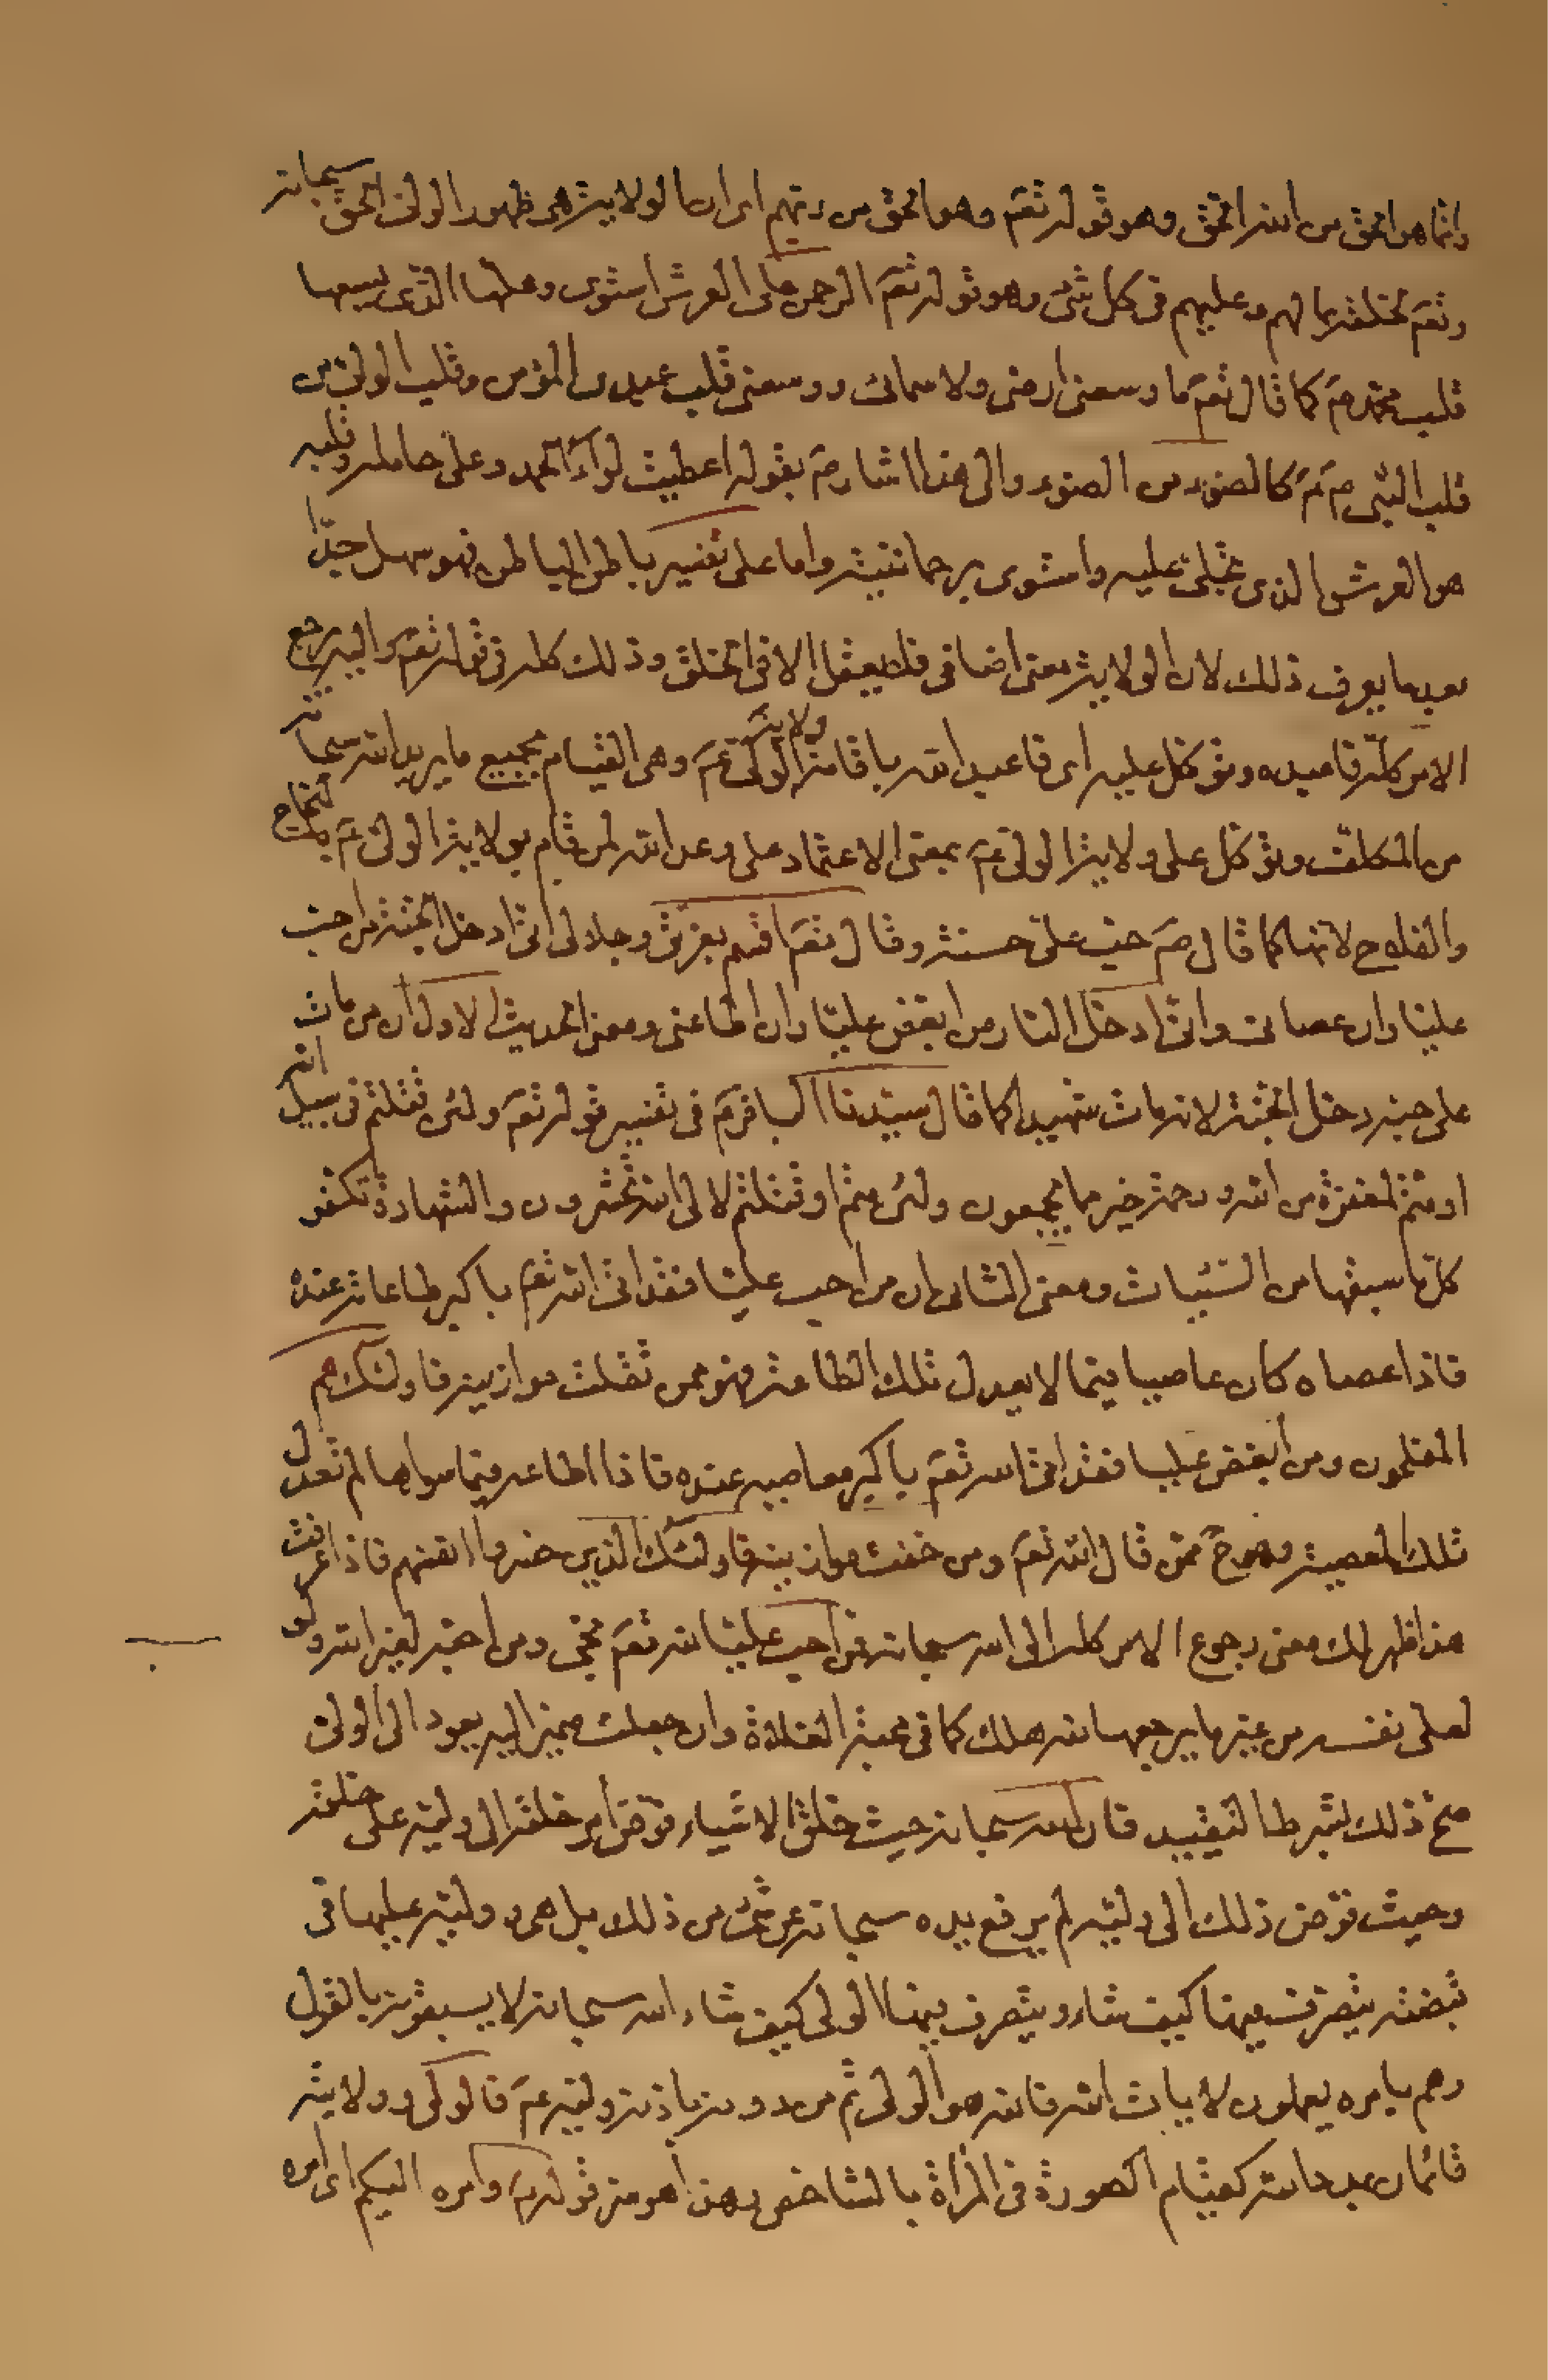 وانما هو الحق من الله الحق وهو قوله تعم وهو الحق من ربهم اى ان الولاية هى ظهور الولى الحق سبحانه
وتعم لخلقه بما لهم وعليهم فى كل شئ وهو قوله تعم الرحمن على العرش استوى ومحلها الذى يسعها
قلب محمد صم كما قال تعم ما وسعنى ارضى ولا سمائى ووسعنى قلب عبدى المؤمن وقلب الولى من
قلب النبى صم كالضوء من الضوء والى هذا اشار صم بقوله اعطيت لوآء الحمد وعلى حامله وقلبه
هو العرش الذى تجلى عليه واستوى برحمانيته واما على تفسير باطن الباطن فهو سهل جدّا
بعد ما يعرف ذلك لان الولاية معنى اضافى فلا يعقل الا فى الخلق وذلك كله فى قوله تعم واليه يرجع
الامر كلّه فاعبده وتوكل عليه اى فاعبد الله باقامة ولاية الولى عم وهى القيام بجميع ما يريد الله سبحانه
من المكلف وتوكل على ولاية الولى عم بمعنى الاعتماد على وعد الله لمن قام بولاية الولى عم بالنجاح
والفلاح لانها كما قال صم حب على حسنة وقال تعم اقسم بعزتى وجلالى انى ادخل الجنة من احب
عليّا وان عصانى وانى ادخل النار من ابغض عليّا وان اطاعنى ومعنى الحديث الاول ان من مات
على حبه دخل الجنة لانه مات شهيدا كما قال سيّدنا الباقر عم فى تفسير قوله تعم ولئن قتلتم فى سبيل الله
او متم لمغفرة من الله ورحمة خير مما يجمعون ولئن متم او قتلتم لالى الله تحشرون والشهادة تكفر
كل ما سبقها من السّيئات ومعنى الثانى ان من احب عليّا فقد اتى الله تعم باكبر طاعاته عنده
فاذا عصاه كان عاصيا فيما لا يعدل تلك الطاعة فهو ممن ثقلت موازينه فاولئك هم
المفلحون ومن ابغض عليا فقد اتى الله تعم باكبر معاصيه عنده فاذا اطاعه فيما سواها لم تعدل
تلك المعصية وهو ح ممن قال الله تعم ومن خفت موازينه فاولئك الذين خسروا انفسهم فاذا عرفت
هذا ظهر لك معنى رجوع الامر كله الى الله سبحانه فمن احب عليّا لله تعم نجى ومن احبه لغير الله ولو
لعلى نفسه من غير ما يرجعها لله هلك كما فى محبة الغلاة وان جعلت ضمير اليه يعود الى الولى
صح ذلك بشرط التقييد فان الله سبحانه حيث خلق الاشياء فوّض امر خلقه الى وليّه على خلقه
وحيث فوّض ذلك الى وليّه لم يرفع يده سبحانه عن شئ من ذلك بل هى و وليّه عليها فى
قبضته يتصرف فيها كيف شاء ويتصرف فيها الولى كيف شاء الله سبحانه لا يسبقونه بالقول
وهم بامره يعملون لايات الله فالله هو الولى ثم من دونه باذنه وليّه عم فالولى وولايته
قائمان به سبحانه كقيام الصورة فى المرآة بالشاخص وهذا هو معنى قوله عم وامره اليكم اى امره